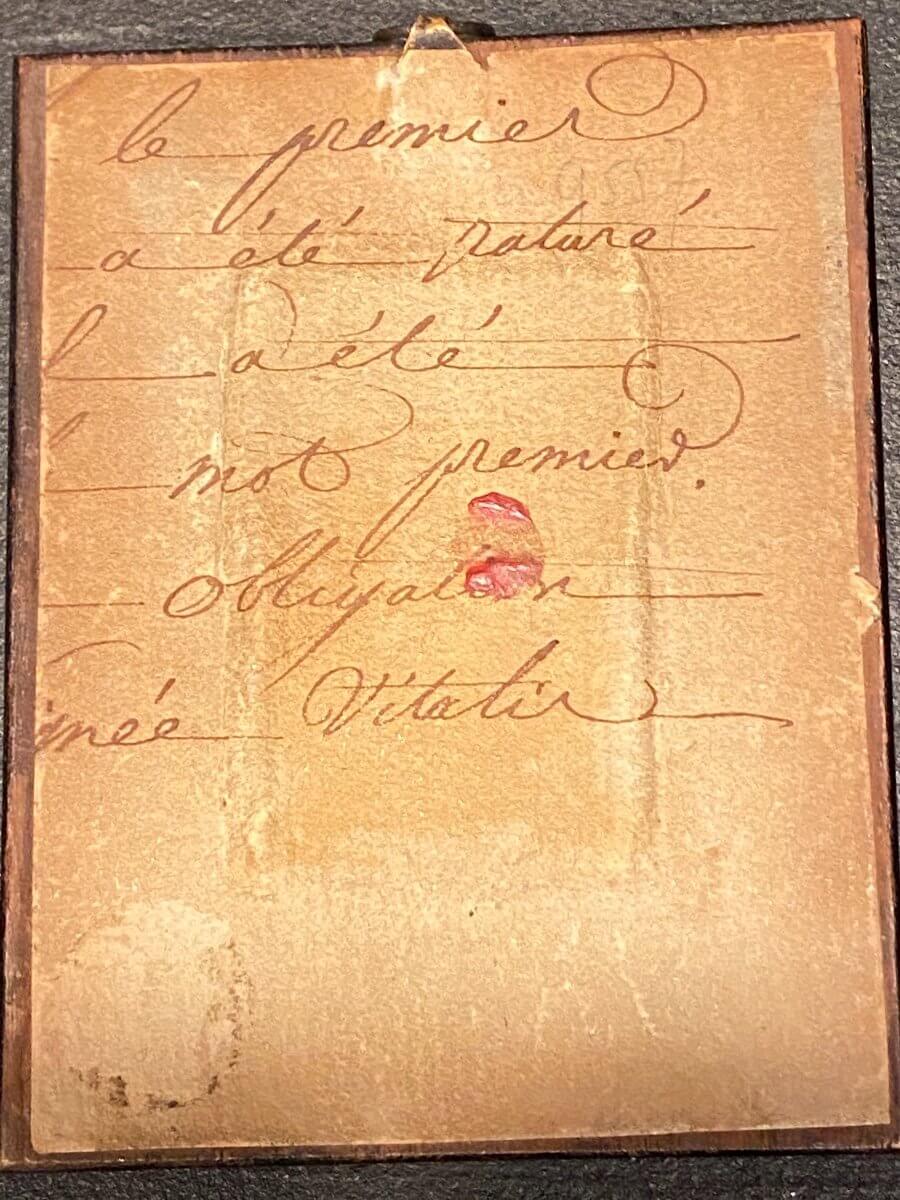 le premier
a été raturé
l a été
mot premier.
Obligation
née Vitalis